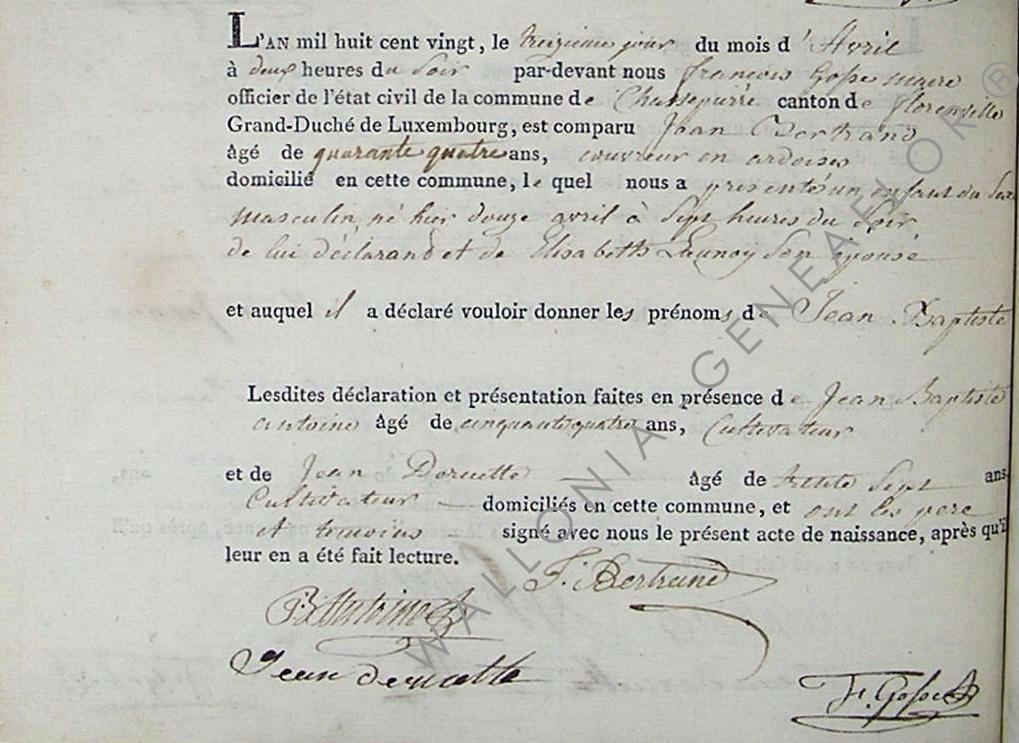 L'AN mil huit cent vingt, le treizieme jour du mois d'Avril
à deux heures du Soir par-devant nous francois Gosse maire
officier de l'état civil de la commune de Chassepierre canton de florenville
Grand-Duché de Luxembourg, est comparu Jean Bertrand
âgé de quarante quatre ans, couvreur en ardoises
domicilié en cette commune, le quel nous a presenté un enfant du Sexe
masculin, né hier douze avril à Sept heures du Soir
de lui déclarand et de Elisabeth Launoy Son épouse
et auquel il a déclaré vouloir donner les prénoms de Jean Baptiste
Lesdites déclaration et présentation faites en présence de Jean Baptiste
antoine âgé de cinquante quatre ans, Cultivateur
et de Jean Derucette âgé de trente Sept ans
Cultivateur domiciliés en cette commune, et ont les pere
et temoins signé avec nous le présent acte de naissance, après qu'il
leur en a été fait lecture.
J. Bertrand
JB Antoine
Jean derucette
F. Gosse
WALLONIA GENEAFLOR ®